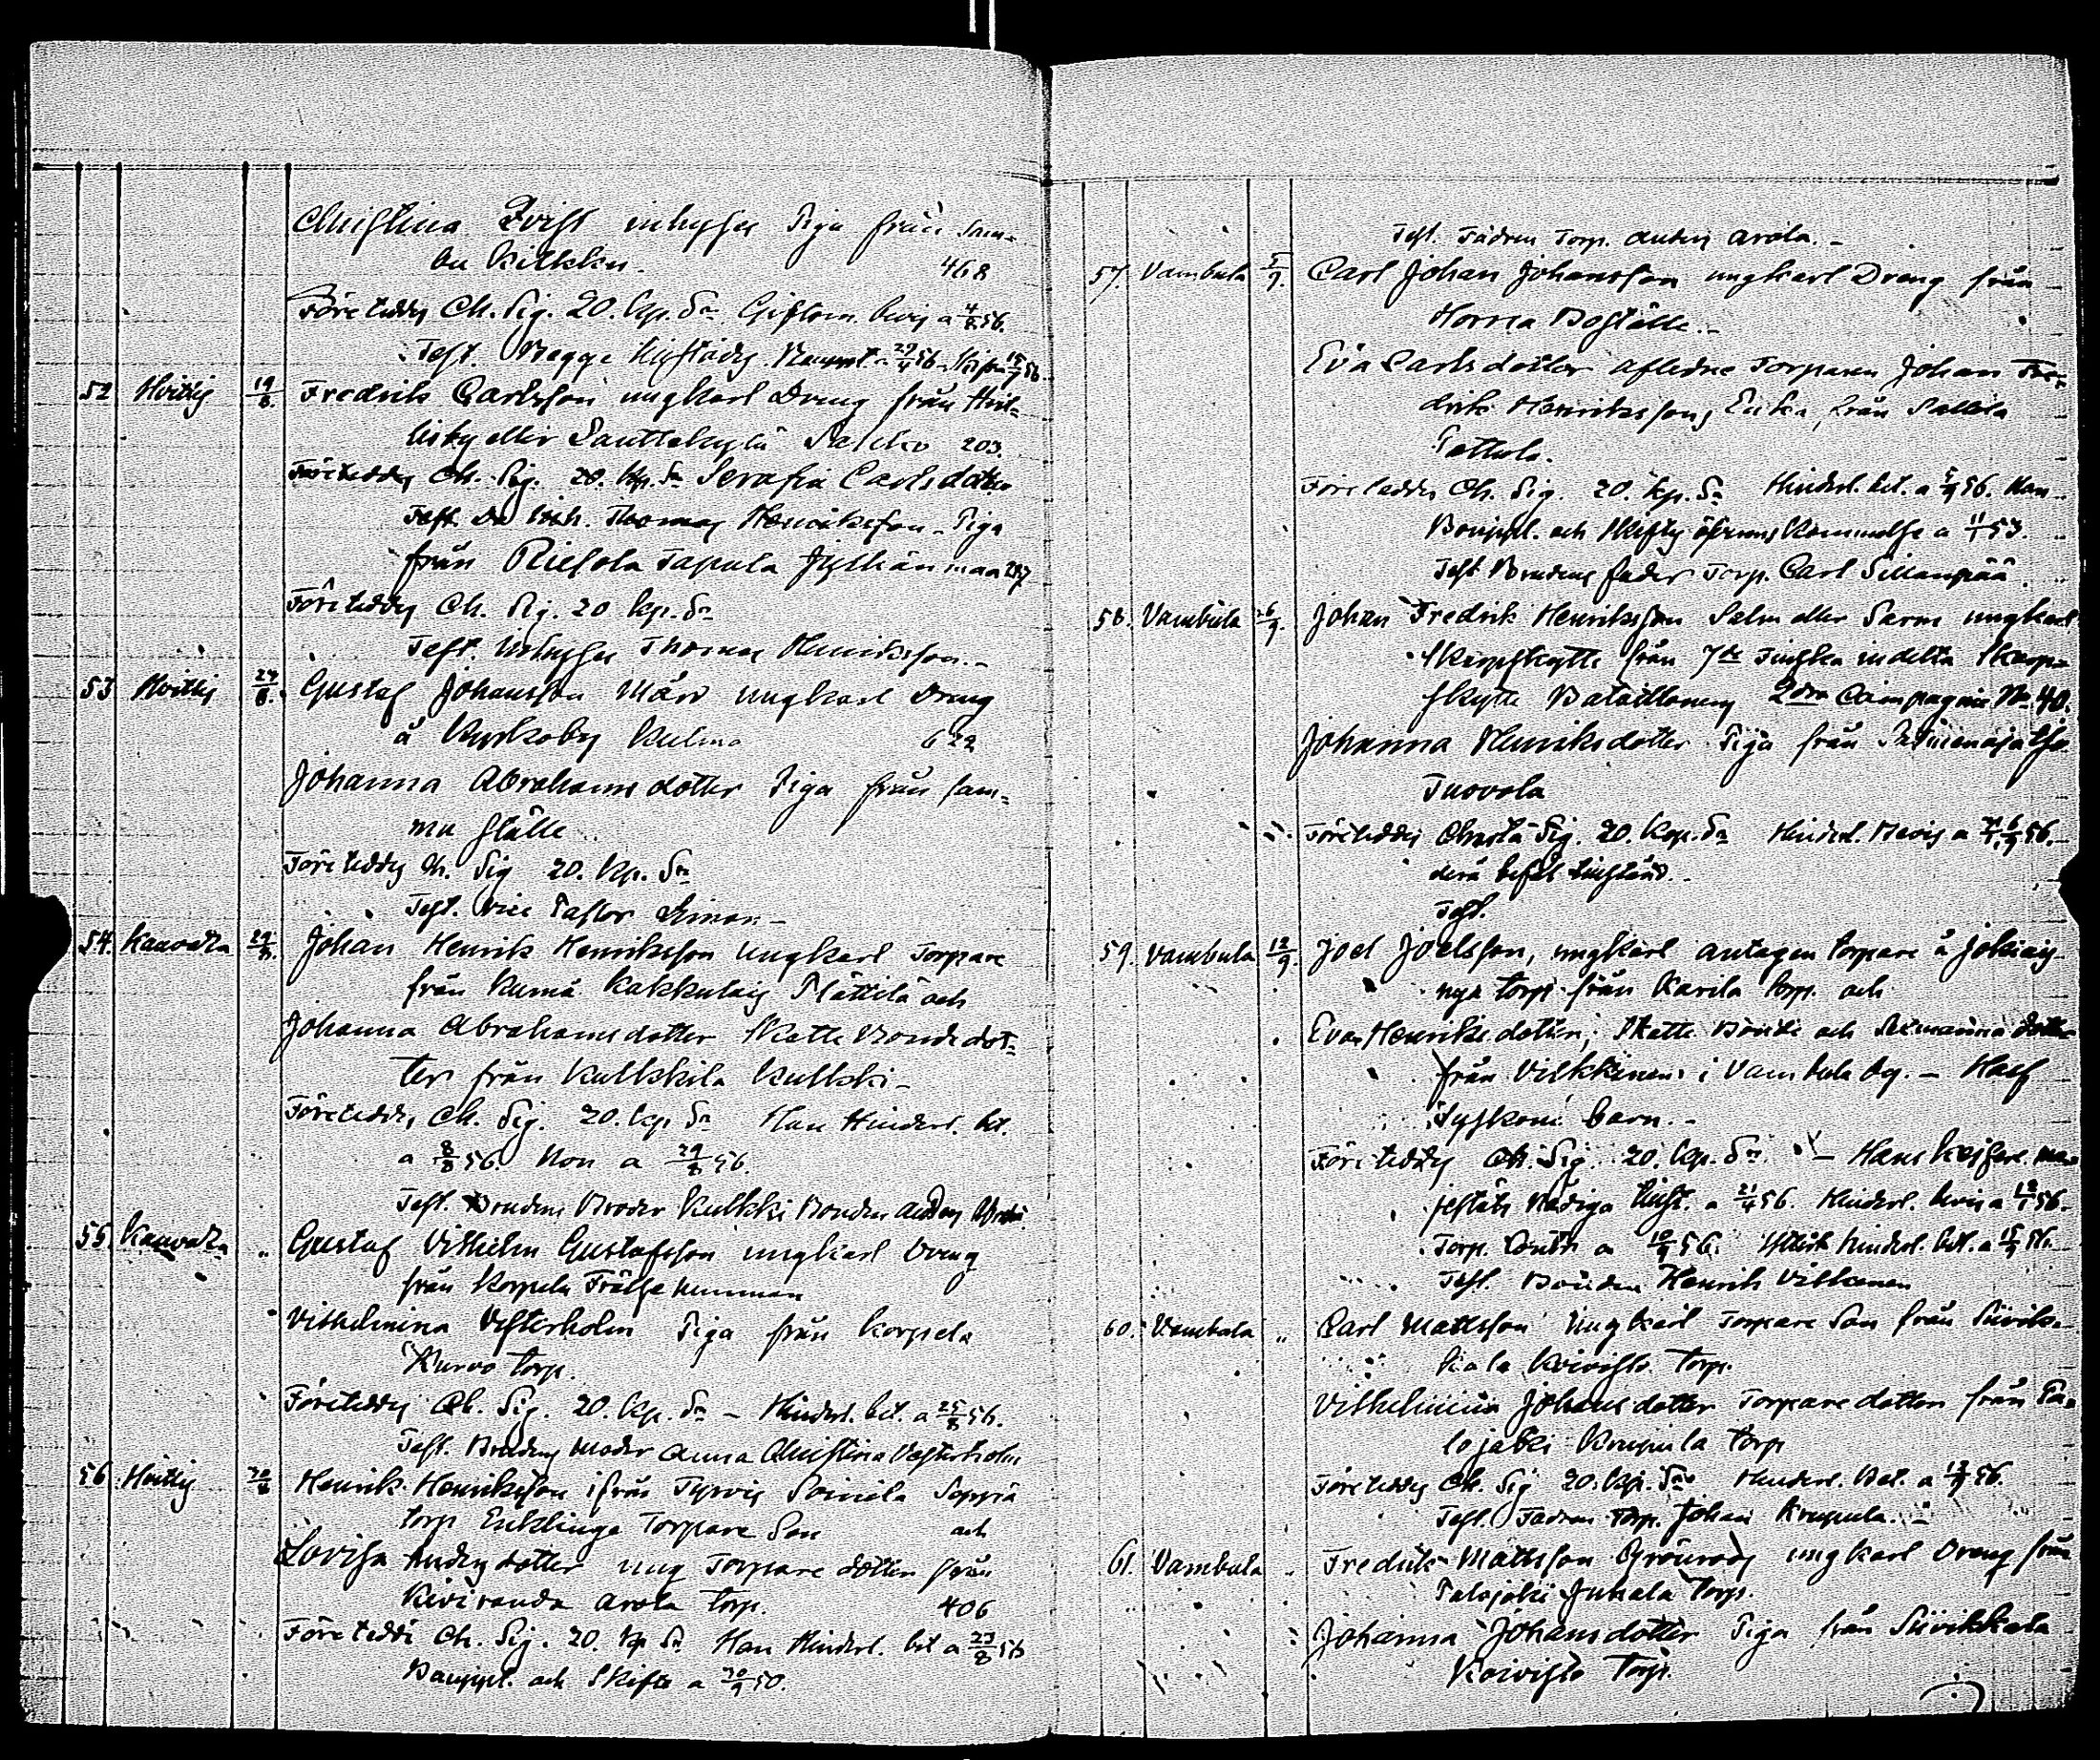 Christina Qvist inhyses Piga från Sam-
bu Kilkku. 468
Företeddes Ch. Sig. 20. kop. Sr Giftom. bevis a 4/8 56.
Test. Begge
52 Hvittis 19/8. Fredrik Carlsson ungkarl Dreng från
eller Sauttakylä 203.
Företeddes Ch. Sig. 20. kop. Sr Serafia Carlsdotter
Test. Thomas Henriksson - Piga
från Riesola Tapula Jylhänmaa 297
Företeddes Ch. Sig. 20 kop. Sr
Test. Inhyses Thomas Henriksson.-
53 Hvittis 24/8. Gustaf Johansson ungkarl Dreng
å Kyrkoby Kulma 622
Johanna Abrahamsdotter Piga från sam-
ma ställe.
Företeddes Ch. Sig 20. kop. Sr
Test. vice Pastor
54. Kauvatsa 24/8. Johan Henrik Henriksson ungkarl Torpare
från Kumå Kakkulais Plättilä och
Johanna Abrahamsdotter Skatte Bondedot-
ter från Kulkkila Kulkki -
Företeddes Ch. Sig. 20. kop. Sr Han Hinderl. bet.
a 8/8 56. Hon a 29/8 56.
Test. Brudens Broder Kulkki Bonden
55. Kauvatsa " Gustaf Vilhelm Gustafsson ungkarl Dreng
från Korpela Frälse hemman
Vilhelmina Vesterholm Piga från Korpela
Kurvo torp.
Företeddes Ch. Sig. 20. kop. Sr - Hinderl. bet. a 25/8 56.
Test. Brudens Moder Anna Christina Vesterholm
56 Hvittis Henrik Henriksson ifrån Tyrvis Soinila
torp Enklinge Torpare Son och
Lovisa Andersdotter ung Torpare dotter från
Kiviranda Arola torp. 406
Företedde Ch. Sig. 20. kop Sr Han Hinderl. bet a 23/8 56
Bouppt. och Skifte a
Test. Fadren Torp. Anders Arola.-
57. Vambula 5/9. Carl Johan Johansson ungkarl Dreng från
Horna Boställe.-
Eva Carlsdotter aflidne Torparen Johan Fre-
drik Henrikssons Enka, från
Företeddes Ch. Sig. 20. kop. Sr Hinderl. bet. a 5/9 56. Hon
Bouppt. och Skiftes
Test Brudens fader Torp. Carl Sillanpää.
58. Vambula 26/9. Johan Fredrik Henriksson Salm eller Sarm ungkarl
Skarpskytte från 7de Finska indelta Skarp-
skytte Bataillonens 2dra Compagnie No. 40.
Johanna Henriksdotter Piga från
Tuovola
Företeddes Ch. Sig. 20. kop. Sr Hinderl. Bevis a
Test.
59. Vambula 12/9. Joel Joelsson, ungkarl antagen torpare å
nya torp från Karila torp. och
Eva Henriksdotter, Skatte Bonde och Nämnmans dotter
från Vilkkinen i Vambula by. - Half
Syskone barn.-
Företeddes Ch. Sig. 20. kop. Sr - Hans Kejserl. Ma-
jestäts Nådiga Tillst. a 21/4 56. Hinderl. bevis a
Torp. Contr. a 10/9 56.
Test. Bonden Henrik Vilkkinen
60. Vambula " Carl Mattsson Ungkarl Torpare Son från Siivik-
kala Koivisto Torp.
Vilhelmina Johansdotter Torparedotter från Pa-
lojoki Krupula torp
Företeddes Ch. Sig 20. kop. Sr Hinderl. Bet. a 12/9 56.
Test. Fadren Torp. Johan Krupula.-
61. Vambula " Fredrik Mattsson Grönroos ungkarl Dreng från
Palojoki Juhala Torp.
Johanna Johansdotter Piga från Siivikkala
Koivisto Torp.